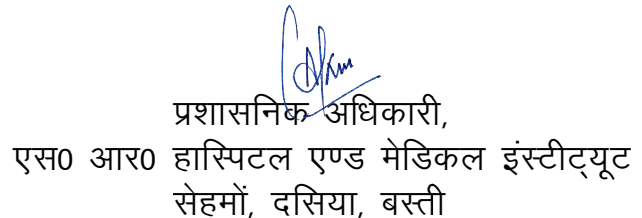 प्रशासनिक अधिकारी,
एस0 आर0 हास्पिटल एण्ड मेडिकल इंस्टीट्यूट
सेहमों, दसिया, बस्ती